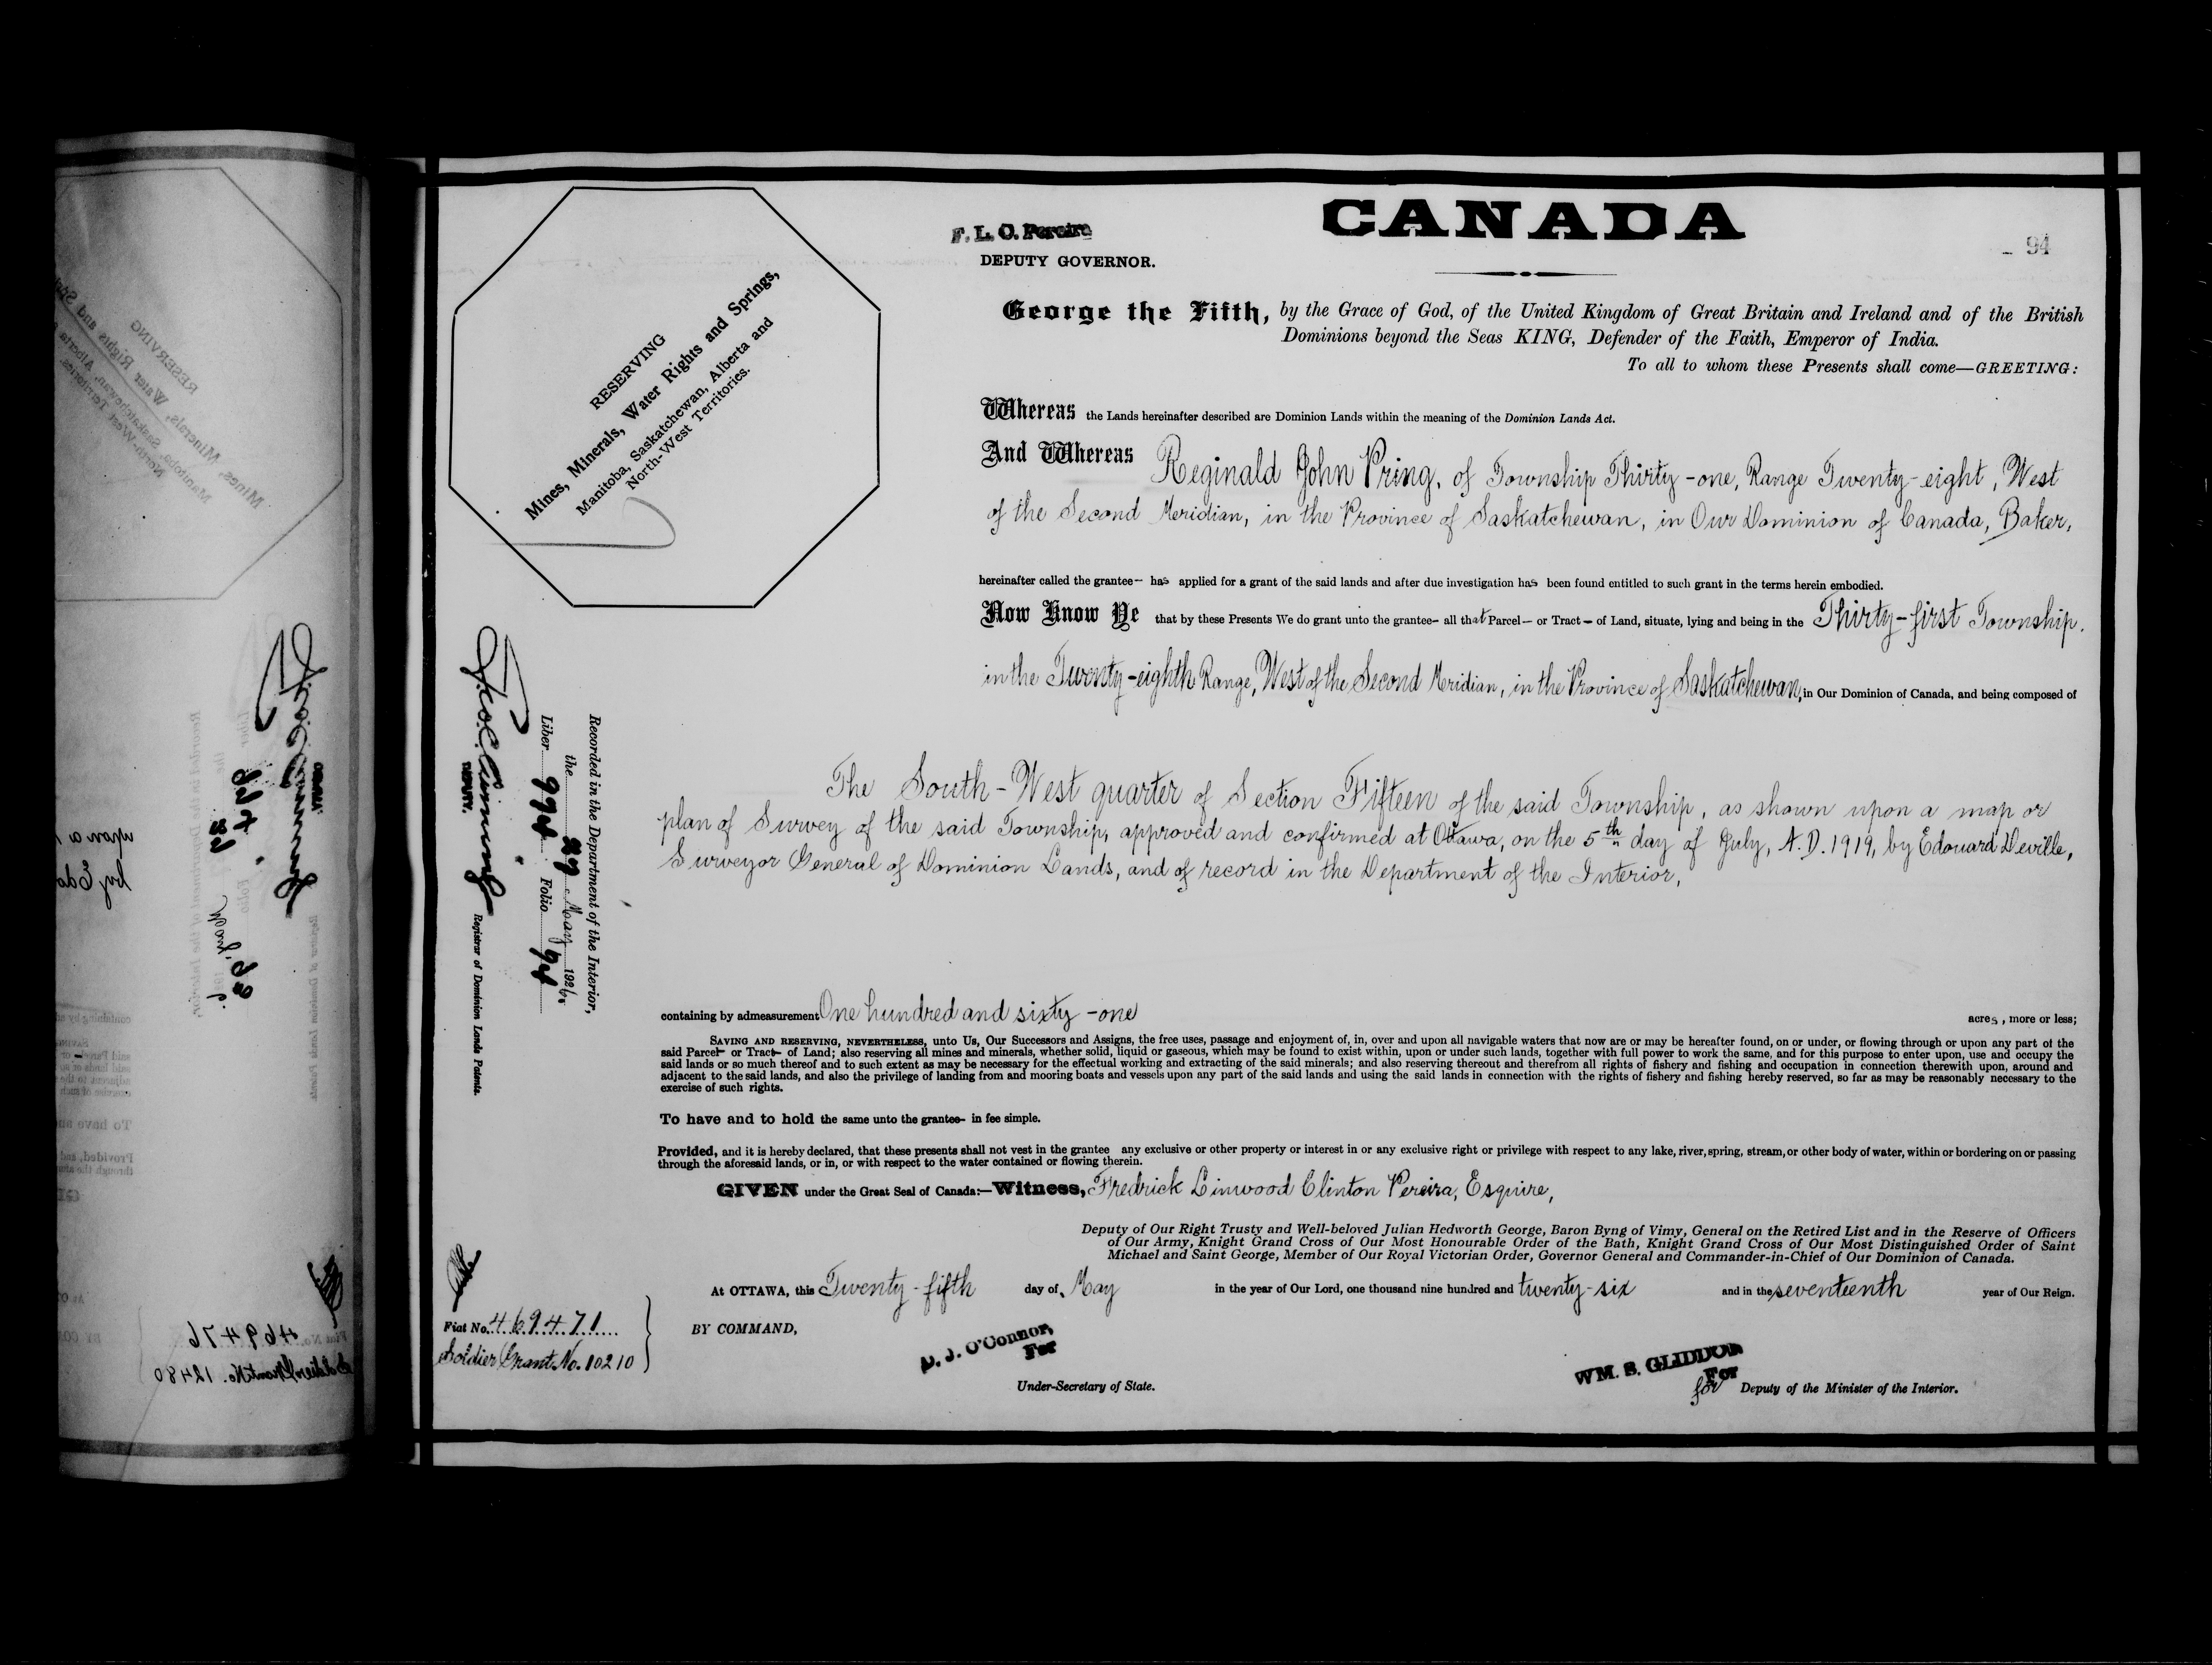 CANADA
F. L. C. Pereira
DEPUTY GOVERNOR.
94
RESERVING
Mines, Minerals, Water Rights and Springs,
Manitoba, Saskatchewan, Alberta and
North-West Territories.
George the Fifth, by the Grace of God, of the United Kingdom of Great Britain and Ireland and of the British
Dominions beyond the Seas KING, Defender of the Faith, Emperor of India.
To all to whom these Presents shall come—GREETING:
Whereas the Lands hereinafter described are Dominion Lands within the meaning of the Dominion Lands Act.
And Whereas Reginald John Pring, of Township Thirty-one, Range Twenty-eight, West
of the Second Meridian, in the Province of Saskatchewan, in Our Dominion of Canada, Baker,
hereinafter called the grantee— has applied for a grant of the said lands and after due investigation has been found entitled to such grant in the terms herein embodied.
Now Know Ye that by these Presents We do grant unto the grantee— all that Parcel— or Tract— of Land, situate, lying and being in the Thirty-first Township,
in the Twenty-eighth Range, West of the Second Meridian, in the Province of Saskatchewan, in Our Dominion of Canada, and being composed of
The South-West quarter of Section Fifteen of the said Township, as shown upon a map or
plan of Survey of the said Township, approved and confirmed at Ottawa, on the 5th day of July, A.D. 1919, by Edouard Deville,
Surveyor General of Dominion Lands, and of record in the Department of the Interior,
Recorded in the Department of the Interior,
the 29 May 1926.
Liber 994 Folio 94
DEPUTY.
Registrar of Dominion Lands Patents.
containing by admeasurement One hundred and sixty-one acres, more or less;
SAVING AND RESERVING, NEVERTHELESS, unto Us, Our Successors and Assigns, the free uses, passage and enjoyment of, in, over and upon all navigable waters that now are or may be hereafter found, on or under, or flowing through or upon any part of the
said Parcel— or Tract— of Land; also reserving all mines and minerals, whether solid, liquid or gaseous, which may be found to exist within, upon or under such lands, together with full power to work the same, and for this purpose to enter upon, use and occupy the
said lands or so much thereof and to such extent as may be necessary for the effectual working and extracting of the said minerals; and also reserving thereout and therefrom all rights of fishery and fishing and occupation in connection therewith upon, around and
adjacent to the said lands, and also the privilege of landing from and mooring boats and vessels upon any part of the said lands and using the said lands in connection with the rights of fishery and fishing hereby reserved, so far as may be reasonably necessary to the
exercise of such rights.
To have and to hold the same unto the grantee— in fee simple.
Provided, and it is hereby declared, that these presents shall not vest in the grantee any exclusive or other property or interest in or any exclusive right or privilege with respect to any lake, river, spring, stream, or other body of water, within or bordering on or passing
through the aforesaid lands, or in, or with respect to the water contained or flowing therein.
GIVEN under the Great Seal of Canada:—Witness, Fredrick Linwood Clinton Pereira, Esquire,
Deputy of Our Right Trusty and Well-beloved Julian Hedworth George, Baron Byng of Vimy, General on the Retired List and in the Reserve of Officers
of Our Army, Knight Grand Cross of Our Most Honourable Order of the Bath, Knight Grand Cross of Our Most Distinguished Order of Saint
Michael and Saint George, Member of Our Royal Victorian Order, Governor General and Commander-in-Chief of Our Dominion of Canada.
At OTTAWA, this Twenty-fifth day of May in the year of Our Lord, one thousand nine hundred and twenty-six and in the seventeenth year of Our Reign.
Fiat No. 469471
Soldier Grant No. 10210
BY COMMAND,
D. J. O'Connor,
For
Under-Secretary of State.
WM. B. GLIDDON
For
for Deputy of the Minister of the Interior.